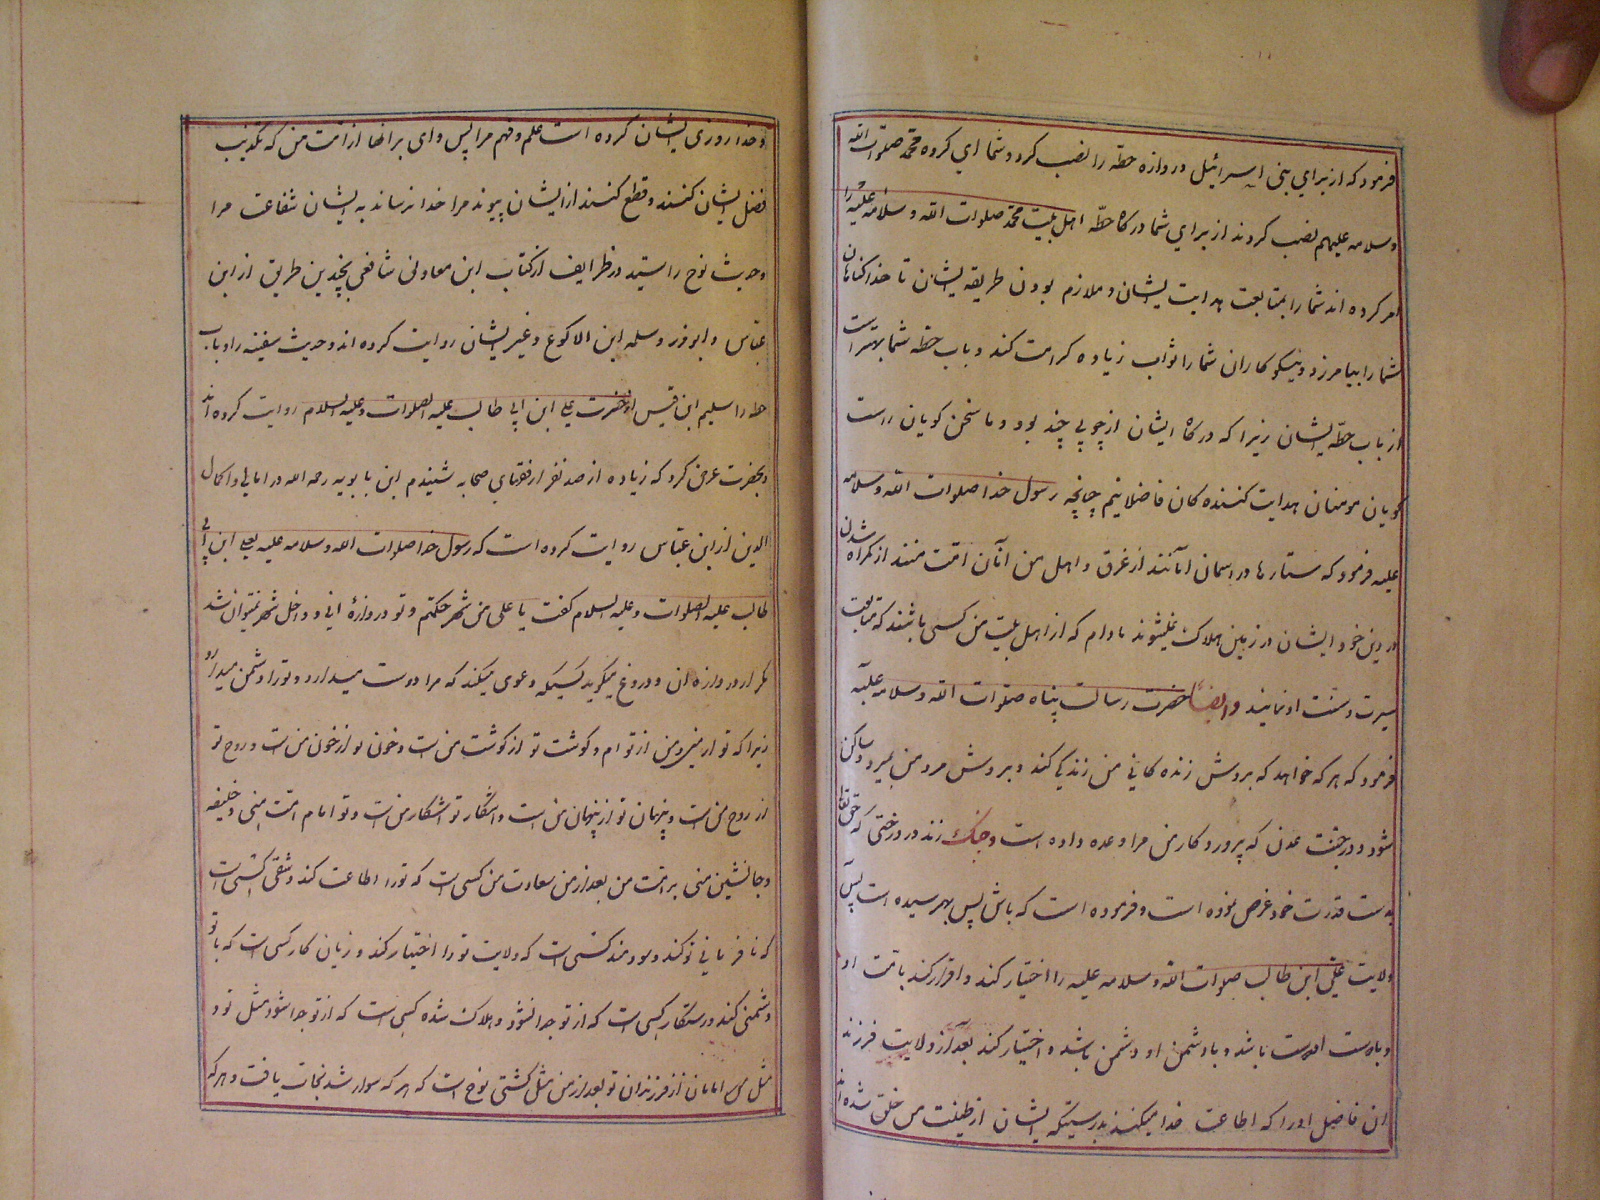 فرمود که از برای بنی اسرائیل دروازه حطّه را نصب کرد و شما ای گروه محمّد صلوات الله
و سلامه علیهم نصب کردند از برای شما درگاه حطّه اهل بیت محمّد صلوات الله و سلامه علیه را
امر کرده اند شما را بمتابعت هدایت ایشان و ملازم بودن طریقه ایشان تا خدا گناهان
شما را بیامرزد و نیکوکاران شما را ثواب زیاده کرامت کند و باب حطّه شما بهتر است
از باب حطّه ایشان زیرا که درگاه ایشان از چوبی چند بود و ما سخن گویان راست
گویان مومنان هدایت کننده گان فاضلانیم چنانچه رسول خدا صلوات الله و سلامه
علیه فرمود که ستارها در اسمان امانند از غرق و اهل من امان امّت منند از گمراه شدن
در دین خود ایشان در زمین هلاک نمیشوند مادام که از اهل بیت من کسی باشند که متابعت
سیرت و سنّت او نمایند و ایضاً حضرت رسالت پناه صلوات الله و سلامه علیه
فرمود که هر که خواهد که بروش زنده کانی من زندگی کند و بروش مردن من بمیرد و ساکن
شود در جنّت عدن که پروردگار من مرا وعده داده است و چنگ زند در درختی که حق تعالی
بدست قدرت خود غرص نموده است و فرموده است که باش پس بهم رسیده است پس
ولایت علی ابن طالب صلوات الله و سلامه علیه را اختیار کند و اقرار کند بامّت او
و با دوست او دوست باشد و با دشمن او دشمن باشد و اختیار کند بعد از او ولایت فرزند
ان فاضل او را که اطاعت خدا میکنند بدرستیکه ایشان از طینت من خلق شده اند
و خدا روزی ایشان کرده است علم و فهم مرا پس وای بر انها از امّت من که تکذیب
فضل ایشان کنند و قطع کنند از ایشان پیوند مرا خدا نرساند به ایشان شفاعت مرا
و حدیث نوح را سید در ظرایف از کتاب ابن مغازلی شافعی بچندین طریق از ابن
عبّاس و ابوذر و سلمه ابن الاکوع و غیر ایشان روایت کرده اند و حدیث سفینه را و باب
حطه را سلیم ابن قیس از حضرت علی ابن ابی طالب علیه الصلوات و علیه السلام روایت کرده اند
و بحضرت عرض کرد که زیاده از صد نفر از فقهای صحابه شنیدم ابن بابویه رحمه الله در امالی و اکمال
الدین از ابن عبّاس روایت کرده است که رسول خدا صلوات الله و سلامه علیه بعلی ابن ابی
طالب علیه الصلوات و علیه السلام گفت یا علی من شهر حکمتم و تو دروازهٔ انی و داخل شهر نمیتوان شد
مگر از دروازه ان و دروغ میگوید کسیکه دعوی میکند که مرا دوست میدارد و تو را دشمن میدارد
زیرا که تو از منی و من از تو ام و گوشت تو از گوشت من است و خون تو از خون من است و روح تو
از روح من است و پنهان تو از پنهان من است و اشکار تو اشکار من است و تو امام امّت منی و خلیفه
و جانشین منی بر امّت من بعد از من سعادت من کسی است که تو را اطاعت کند و شقی کسی است
که نافرمانی تو کند و سودمند کسی است که ولایت تو را اختیار کند و زیان کار کسی است که با تو
دشمنی کند و رستگار کسی است که از تو جدا نشود و هلاک شده کسی است که از تو جدا شود مثل تو و
مثل امامان از فرزندان تو بعد از من مثل کشتی نوح است که هر که سوار شد نجات یافت و هر که